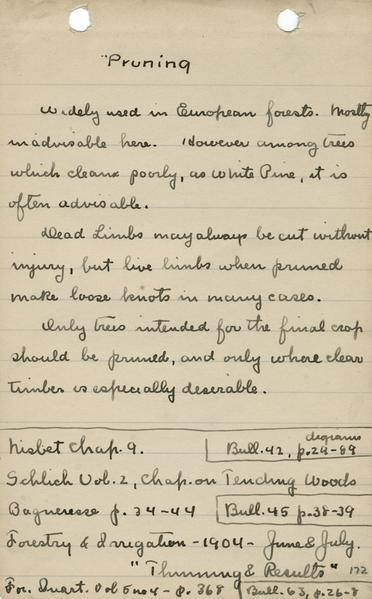 "Pruning
Widely used in European forests. Mostly
inadvisable here. However among trees
which cleans poorly, as White Pine, it is
often advisable.
Dead Limbs may always be cut without
injury, but live limbs when pruned
make loose knots in many cases.
Only trees intended for the final crop
should be pruned, and only where clear
timber is especially deserable.
Nisbet Chap. 9.
degrams
Bull. 42, p.29-89
Schlich Vol. 2, Chap. on Tending Woods
Bagneresse p. 34-44
Bull. 45 p.38-39
Forestry & Irrigation -1904- June & July.
"Thinning & Results" 172
For. Quart. Vol 5 no 4 - p. 368
Bull. 63, p.26-8